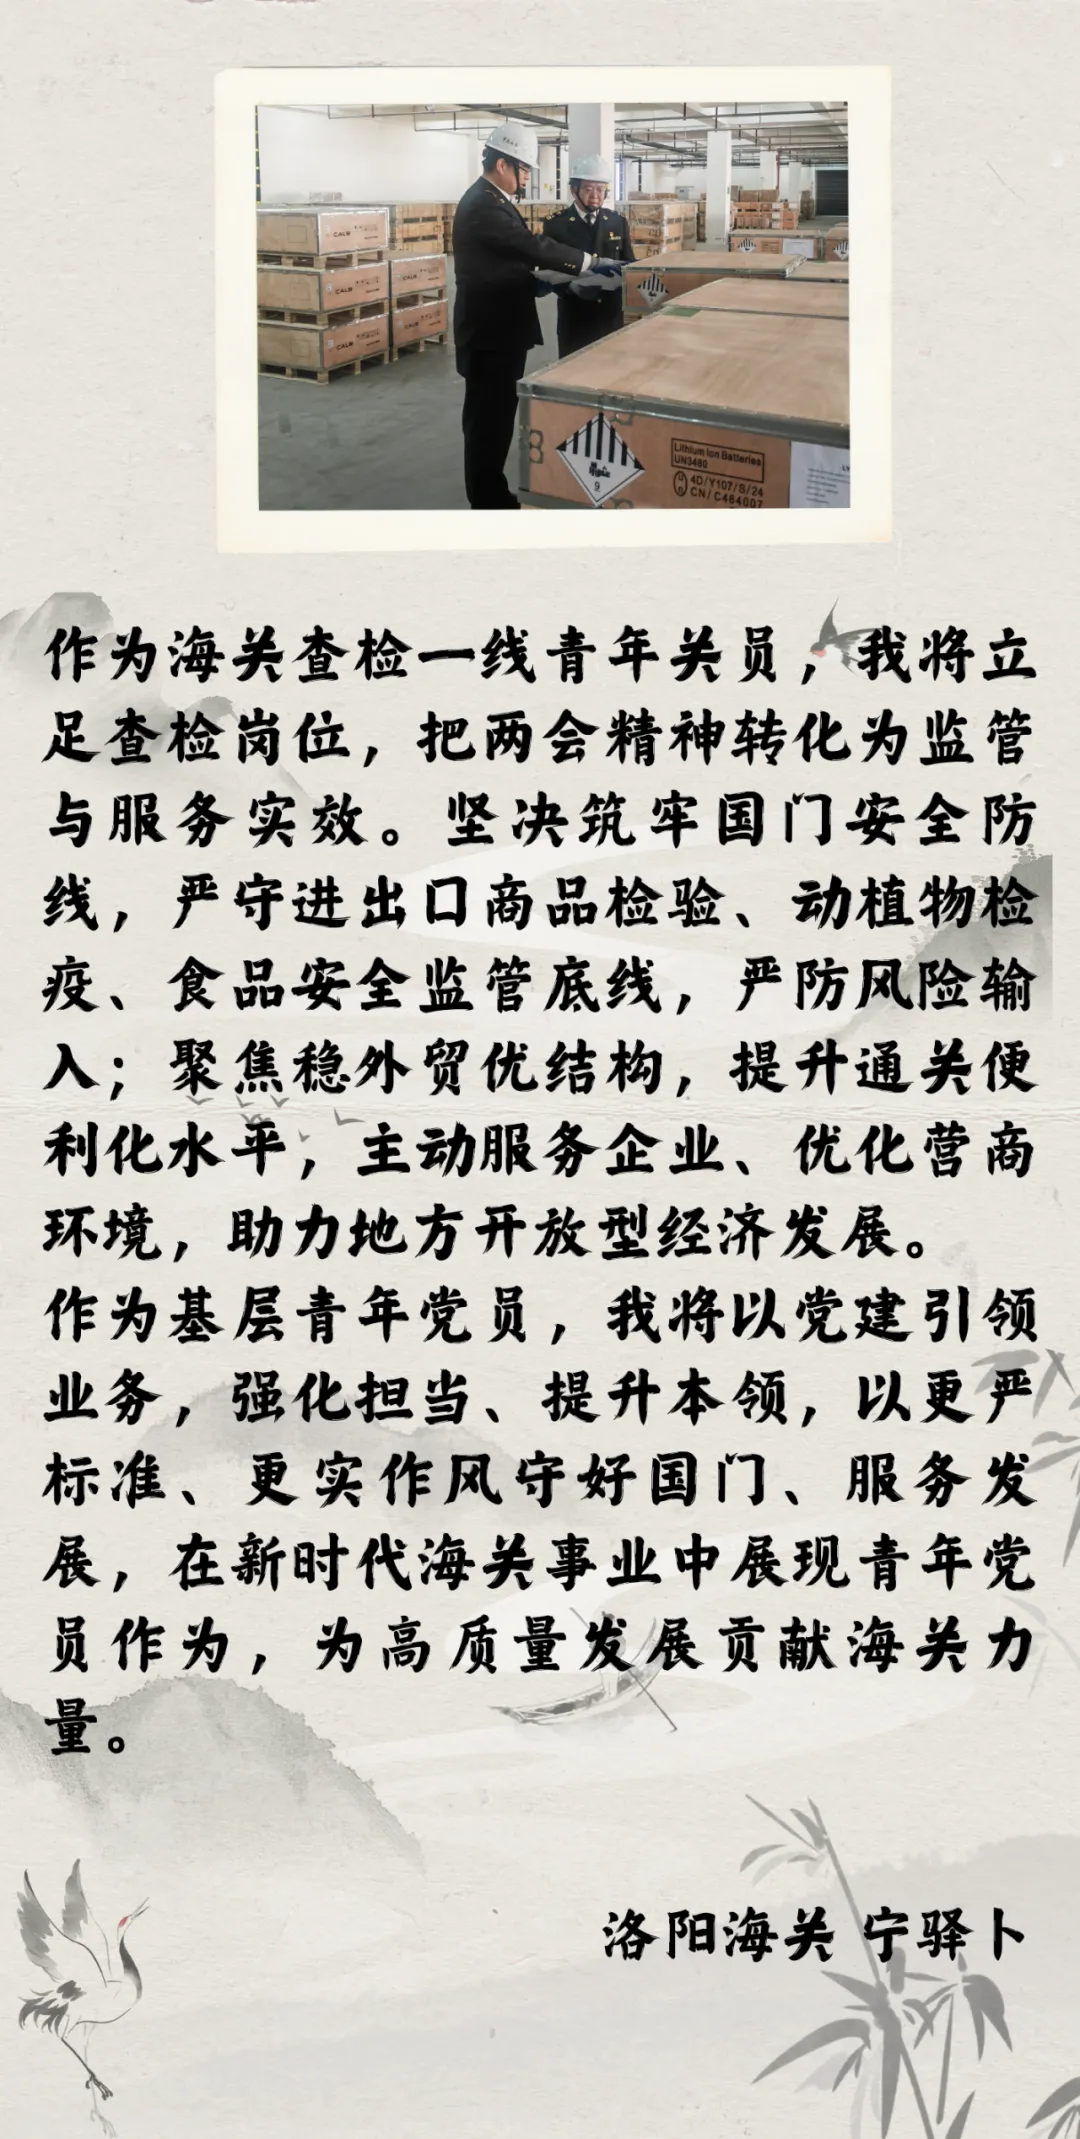 CALB
CALB
CALB
Lithium Ion Batteries
UN3480
4D/Y107/S/24
CN/C464007
9
作为海关查检一线青年关员，我将立
足查检岗位，把两会精神转化为监管
与服务实效。坚决筑牢国门安全防
线，严守进出口商品检验、动植物检
疫、食品安全监管底线，严防风险输
入；聚焦稳外贸优结构，提升通关便
利化水平，主动服务企业、优化营商
环境，助力地方开放型经济发展。
作为基层青年党员，我将以党建引领
业务，强化担当、提升本领，以更严
标准、更实作风守好国门、服务发
展，在新时代海关事业中展现青年党
员作为，为高质量发展贡献海关力
量。
洛阳海关 宁驿卜